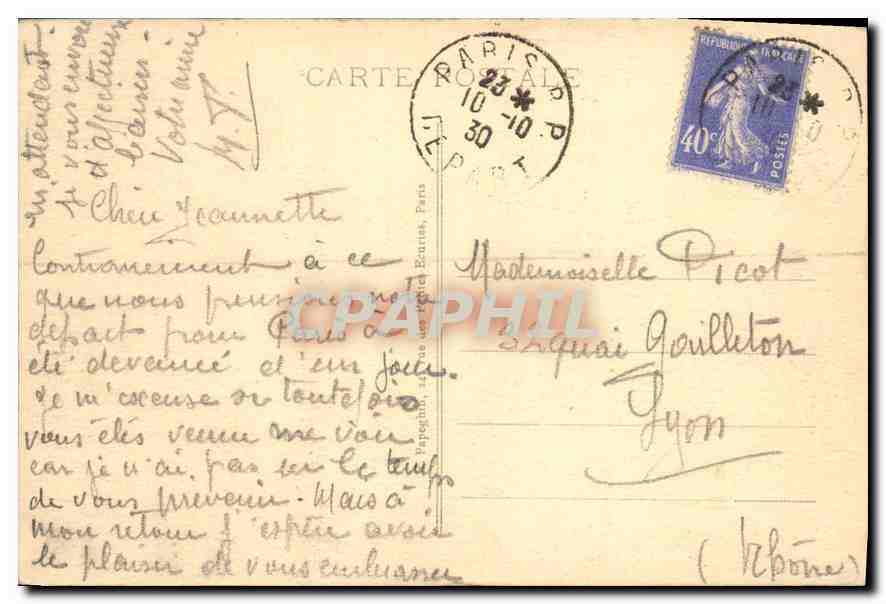 CARTE POSTALE
Chère Jeannette
Contrairement à ce
que nous pensions notre
départ pour Paris à
été devancé d'un jour.
Je m'excuse si toutefois
vous étés venu me voir
car je n'ai pas eu le temps
de vous prévenir. Mais à
mon retour j'espère avoir
le plaisir de vous embrasser
m'attendant.
je vous envoie
d'affectueux
baisers.
Votre amie
M.J.
PARIS R.P.
23 *
10 -10
30
DEPART
REPUBLIQUE FRANÇAISE
40c
POSTES
PARIS R.P.
23 *
10
Papeghin, rue des Petites Ecuries, Paris
Mademoiselle Picot
32 quai Gailleton
Lyon
(Rhône)
CPAPHIL